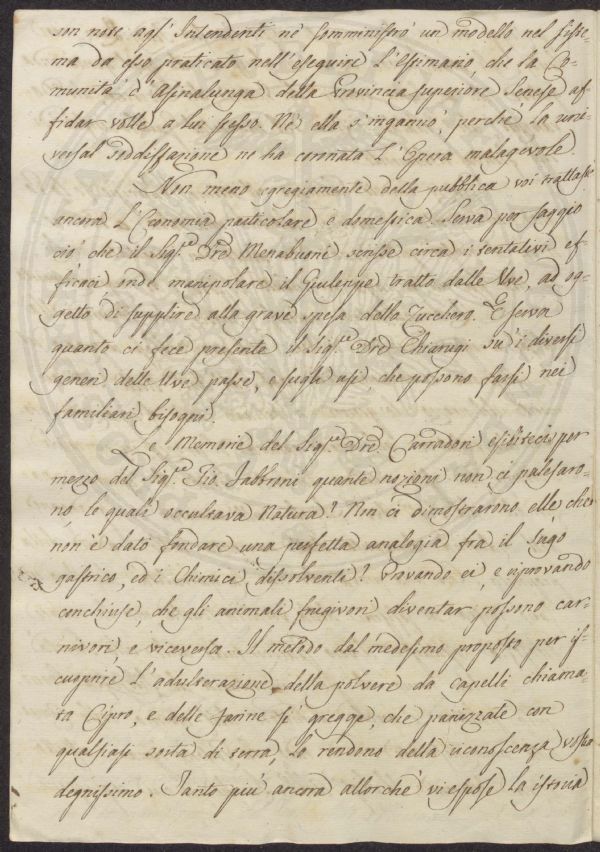 son note agl' Intendenti ne somministrò un modello nel siste-
ma da esso praticato nell'eseguire l'Estimario, che la Co-
munità d'Asinalunga della Provincia superiore Senese af-
fidar volle a lui stesso. Nè ella s'ingannò, perchè la uni-
versal soddisfazione ne ha coronata l'Opera malagevole
Non meno egregiamente della pubblica voi trattaste
ancora l'Economia particolare e domestica. Serva per saggio
ciò che il Sig.r Dre Menabuoni scrisse circa i tentativi ef-
ficaci onde manipolare il Giulebbe tratto dalle Uve, ad og-
getto di supplire alla grave spesa dello Zucchero. E serva
quanto ci fece presente il Sig.r Dre Chiarugi su i diversi
generi delle Uve passe, e sugli usi che possono farsi nei
familiari bisogni.
Le Memorie del Sig.r Dre Carradori esibiteci per
mezzo del Sig.r Gio. Fabbroni quante nozioni non ci palesaro-
no, le quali occultava Natura? Non ci dimostrarono elle che
non è dato fondare una perfetta analogia fra il Sugo
gastrico, ed i Chimici dissolventi? Provando ei, e riprovando
conchiuse, che gli animali frugivori diventar possono car-
nivori, e viceversa. Il metodo dal medesimo proposto per is-
cuoprire l'adulterazione della polvere da capelli chiama-
ta Cipro, e delle farine sì gregge, che panizzate con
qualsiasi sorta di terra, lo rendono della riconoscenza vostra
degnissimo. Tanto più ancora allorchè vi espose la istoria